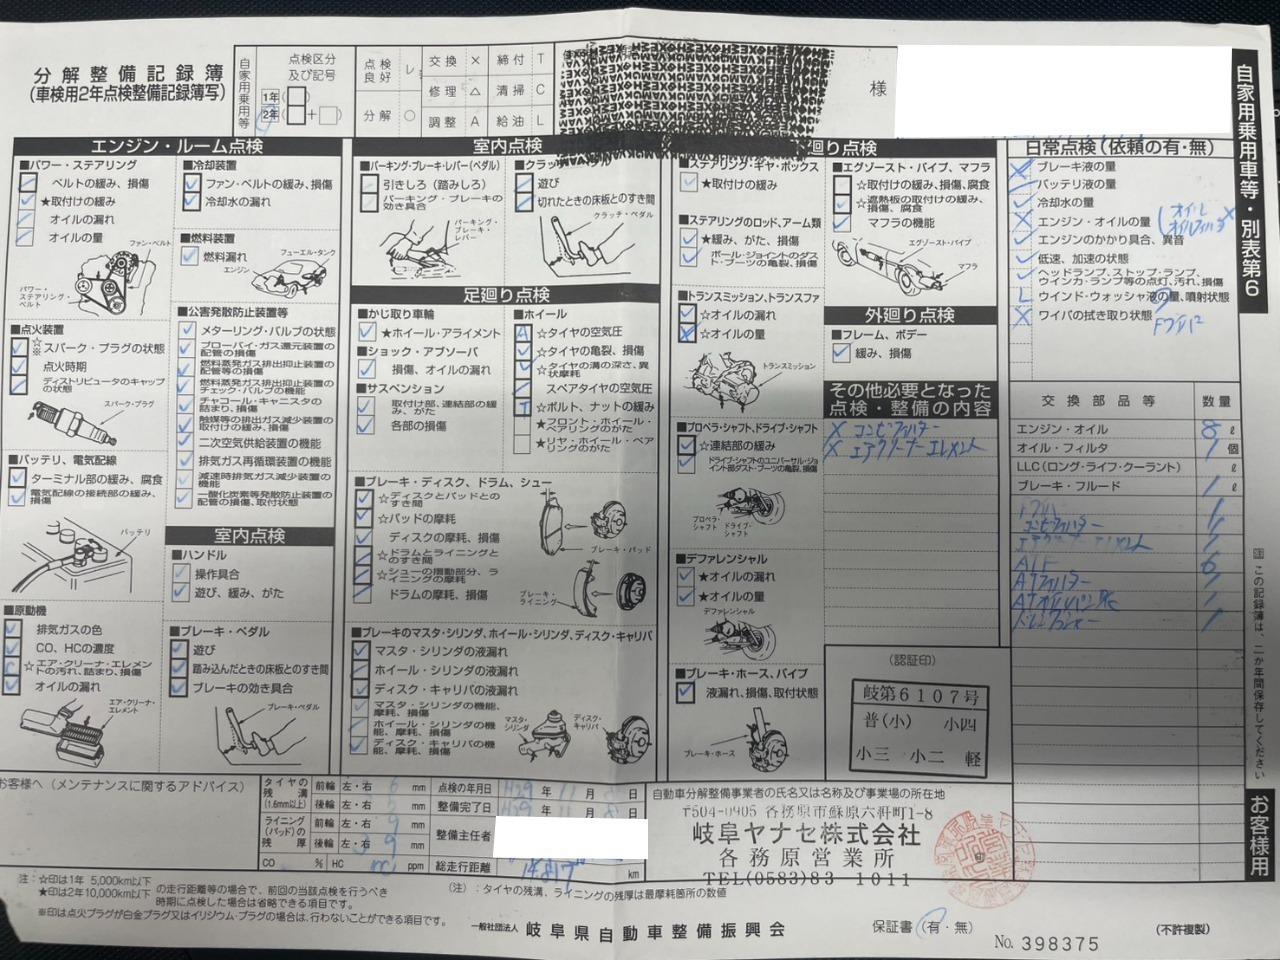 分解整備記録簿
(車検用2年点検整備記録簿写)
自家用乗用等
点検区分
及び記号
1年
2年
点検良好 レ
分解 ○
交換 ×
修理 △
調整 A
締付 T
清掃 C
給油 L
様
自家用乗用車等・別表第6
エンジン・ルーム点検
■パワー・ステアリング
ベルトの緩み、損傷
★取付けの緩み
オイルの漏れ
オイルの量
ファン・ベルト
パワー・ステアリング・ベルト
■点火装置
☆※スパーク・プラグの状態
点火時期
ディストリビュータのキャップの状態
スパーク・プラグ
■バッテリ、電気配線
ターミナル部の緩み、腐食
電気配線の接続部の緩み、損傷
バッテリ
■原動機
排気ガスの色
CO、HCの濃度
☆エア・クリーナ・エレメントの汚れ、詰まり、損傷
オイルの漏れ
エア・クリーナ・エレメント
■冷却装置
ファン・ベルトの緩み、損傷
冷却水の漏れ
■燃料装置
燃料漏れ
フューエル・タンク
エンジン
■公害発散防止装置等
メターリング・バルブの状態
ブローバイ・ガス還元装置の配管の損傷
燃料蒸発ガス排出抑止装置の配管等の損傷
燃料蒸発ガス排出抑止装置のチェック・バルブの機能
チャコール・キャニスタの詰まり、損傷
触媒等の排出ガス減少装置の取付けの緩み、損傷
二次空気供給装置の機能
排気ガス再循環装置の機能
減速時排気ガス減少装置の機能
一酸化炭素等発散防止装置の配管の損傷、取付状態
室内点検
■ハンドル
操作具合
遊び、緩み、がた
■ブレーキ・ペダル
遊び
踏み込んだときの床板とのすき間
ブレーキの効き具合
ブレーキ・ペダル
室内点検
■パーキング・ブレーキ・レバー(ペダル)
引きしろ(踏みしろ)
パーキング・ブレーキの効き具合
パーキング・ブレーキ・レバー
遊び
切れたときの床板とのすき間
クラッチ・ペダル
足廻り点検
■かじ取り車輪
★ホイール・アライメント
■ショック・アブソーバ
損傷、オイルの漏れ
■サスペンション
取付部、連結部の緩み、がた
各部の損傷
■ホイール
☆タイヤの空気圧
☆タイヤの亀裂、損傷
☆タイヤの溝の深さ、異状摩耗
スペアタイヤの空気圧
☆ボルト、ナットの緩み
★フロント・ホイール・ベアリングのがた
★リヤ・ホイール・ベアリングのがた
■ブレーキ・ディスク、ドラム、シュー
☆ディスクとパッドとのすき間
☆パッドの摩耗
ディスクの摩耗、損傷
☆ドラムとライニングとのすき間
☆シューの摺動部分、ライニングの摩耗
ドラムの摩耗、損傷
ブレーキ・パッド
ブレーキ・ライニング
■ブレーキのマスタ・シリンダ、ホイール・シリンダ、ディスク・キャリパ
マスタ・シリンダの液漏れ
ホイール・シリンダの液漏れ
ディスク・キャリパの液漏れ
マスタ・シリンダの機能、摩耗、損傷
ホイール・シリンダの機能、摩耗、損傷
ディスク・キャリパの機能、摩耗、損傷
マスタ・シリンダ
ディスク・キャリパ
廻り点検
■ステアリング・ギヤ・ボックス
★取付けの緩み
■ステアリングのロッド、アーム類
★緩み、がた、損傷
ボール・ジョイントのダスト・ブーツの亀裂、損傷
■トランスミッション、トランスファ
☆オイルの漏れ
☆オイルの量
トランスミッション
■プロペラ・シャフト、ドライブ・シャフト
☆連結部の緩み
ドライブ・シャフトのユニバーサル・ジョイント部ダスト・ブーツの亀裂、損傷
プロペラ・シャフト
ドライブ・シャフト
■デファレンシャル
★オイルの漏れ
★オイルの量
デファレンシャル
■ブレーキ・ホース、パイプ
液漏れ、損傷、取付状態
ブレーキ・ホース
■エグゾースト・パイプ、マフラ
☆取付けの緩み、損傷、腐食
☆遮熱板の取付けの緩み、損傷、腐食
マフラの機能
エグゾースト・パイプ
マフラ
外廻り点検
■フレーム、ボデー
緩み、損傷
その他必要となった
点検・整備の内容
× エアクリーナーエレメント
(認証印)
岐第6107号
普(小) 小四
小三 小二 軽
日常点検(依頼の有・無)
ブレーキ液の量
バッテリ液の量
冷却水の量
エンジン・オイルの量
エンジンのかかり具合、異音
低速、加速の状態
ヘッドランプ、ストップ・ランプ、ウインカ・ランプ等の点灯、汚れ、損傷
ウインド・ウォッシャ液の量、噴射状態
ワイパの拭き取り状態
交換部品等 数量
エンジン・オイル 8 ℓ
オイル・フィルタ 1 個
LLC(ロング・ライフ・クーラント) ℓ
ブレーキ・フルード 1 ℓ
注 この記録簿は、二か年間保存してください
お客様用
お客様へ(メンテナンスに関するアドバイス)
タイヤの残溝(1.6mm以上)
前輪 左・右 mm
後輪 左・右 mm
ライニング(パッド)の残厚
前輪 左・右 9 mm
後輪 左・右 mm
CO % HC ppm
点検の年月日 H29 年 11 月 8 日
整備完了日 H29 年 11 月 8 日
整備主任者
総走行距離 km
自動車分解整備事業者の氏名又は名称及び事業場の所在地
〒504-0905 各務原市蘇原六軒町1-8
岐阜ヤナセ株式会社
各務原営業所
TEL(0583)83 1011
注:☆印は1年 5,000km以下
★印は2年10,000km以下
の走行距離等の場合で、前回の当該点検を行うべき時期に点検した場合は省略できる項目です。
※印は点火プラグが白金プラグ又はイリジウム・プラグの場合は、行わないことができる項目です。
(注):タイヤの残溝、ライニングの残厚は最摩耗箇所の数値
一般社団法人 岐阜県自動車整備振興会
保証書(有・無)
No. 398375
(不許複製)